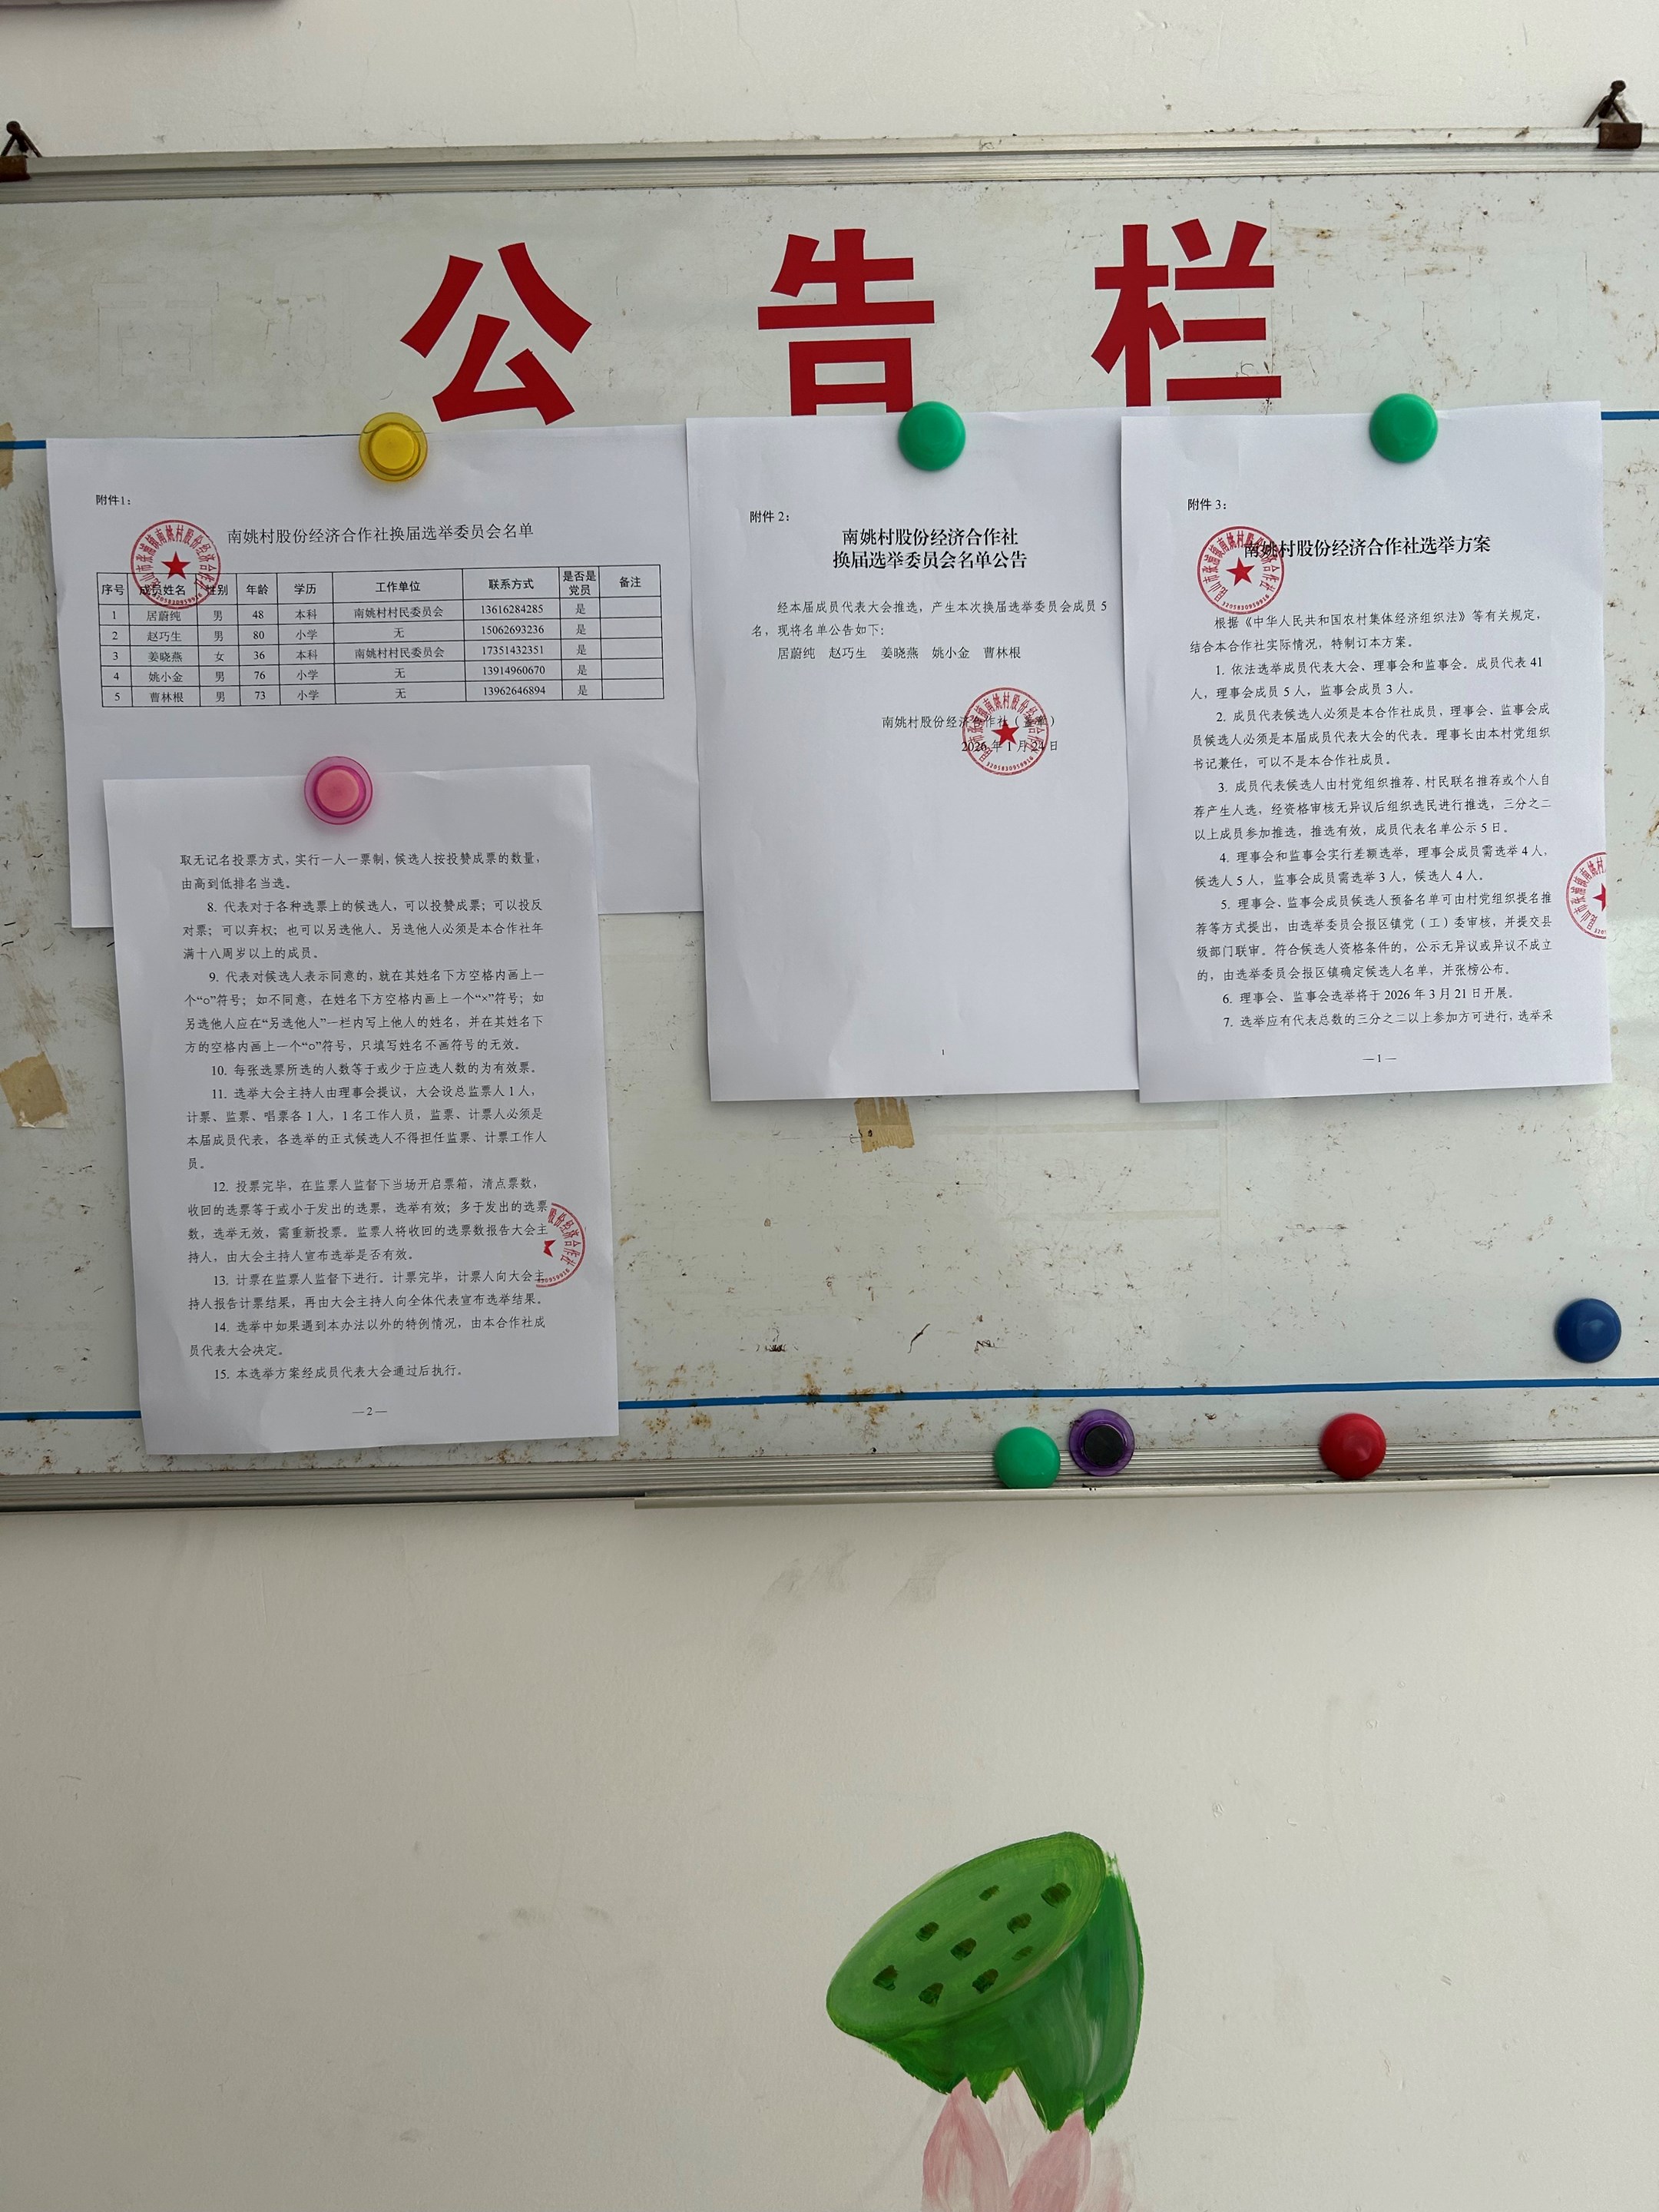 公告栏
附件1：
南姚村股份经济合作社换届选举委员会名单
序号 成员姓名 性别 年龄 学历 工作单位 联系方式 是否是党员 备注
1 居蔚纯 男 48 本科 南姚村村民委员会 13616284285 是
2 赵巧生 男 80 小学 无 15062693236 是
3 姜晓燕 女 36 本科 南姚村村民委员会 17351432351 是
4 姚小金 男 76 小学 无 13914960670 是
5 曹林根 男 73 小学 无 13962646894 是
附件 2：
南姚村股份经济合作社
换届选举委员会名单公告
经本届成员代表大会推选，产生本次换届选举委员会成员 5
名，现将名单公告如下：
居蔚纯 赵巧生 姜晓燕 姚小金 曹林根
南姚村股份经济合作社（盖章）
2026 年 1 月 24 日
1
附件 3：
南姚村股份经济合作社选举方案
根据《中华人民共和国农村集体经济组织法》等有关规定，
结合本合作社实际情况，特制订本方案。
1. 依法选举成员代表大会、理事会和监事会。成员代表 41
人，理事会成员 5 人，监事会成员 3 人。
2. 成员代表候选人必须是本合作社成员，理事会、监事会成
员候选人必须是本届成员代表大会的代表。理事长由本村党组织
书记兼任，可以不是本合作社成员。
3. 成员代表候选人由村党组织推荐、村民联名推荐或个人自
荐产生人选，经资格审核无异议后组织选民进行推选，三分之二
以上成员参加推选，推选有效，成员代表名单公示 5 日。
4. 理事会和监事会实行差额选举，理事会成员需选举 4 人，
候选人 5 人，监事会成员需选举 3 人，候选人 4 人。
5. 理事会、监事会成员候选人预备名单可由村党组织提名推
荐等方式提出，由选举委员会报区镇党（工）委审核，并提交县
级部门联审。符合候选人资格条件的，公示无异议或异议不成立
的，由选举委员会报区镇确定候选人名单，并张榜公布。
6. 理事会、监事会选举将于 2026 年 3 月 21 日开展。
7. 选举应有代表总数的三分之二以上参加方可进行，选举采
—1—
取无记名投票方式，实行一人一票制，候选人按投赞成票的数量，
由高到低排名当选。
8. 代表对于各种选票上的候选人，可以投赞成票；可以投反
对票；可以弃权；也可以另选他人。另选他人必须是本合作社年
满十八周岁以上的成员。
9. 代表对候选人表示同意的，就在其姓名下方空格内画上一
个“○”符号；如不同意，在姓名下方空格内画上一个“×”符号；如
另选他人应在“另选他人”一栏内写上他人的姓名，并在其姓名下
方的空格内画上一个“○”符号，只填写姓名不画符号的无效。
10. 每张选票所选的人数等于或少于应选人数的为有效票。
11. 选举大会主持人由理事会提议，大会设总监票人 1 人，
计票、监票、唱票各 1 人，1 名工作人员，监票、计票人必须是
本届成员代表，各选举的正式候选人不得担任监票、计票工作人
员。
12. 投票完毕，在监票人监督下当场开启票箱，清点票数，
收回的选票等于或小于发出的选票，选举有效；多于发出的选票
数，选举无效，需重新投票。监票人将收回的选票数报告大会主
持人，由大会主持人宣布选举是否有效。
13. 计票在监票人监督下进行。计票完毕，计票人向大会主
持人报告计票结果，再由大会主持人向全体代表宣布选举结果。
14. 选举中如果遇到本办法以外的特例情况，由本合作社成
员代表大会决定。
15. 本选举方案经成员代表大会通过后执行。
—2—